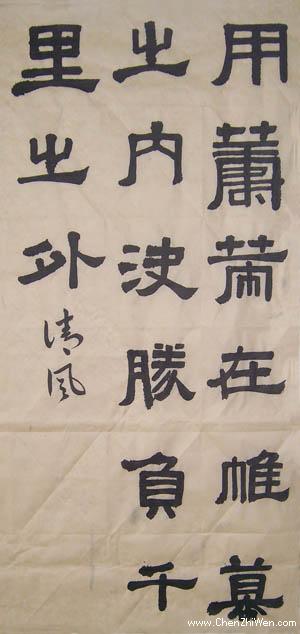 用籌策在帷幕
之内決勝負千
里之外
清风
www.ChenZhiWen.com